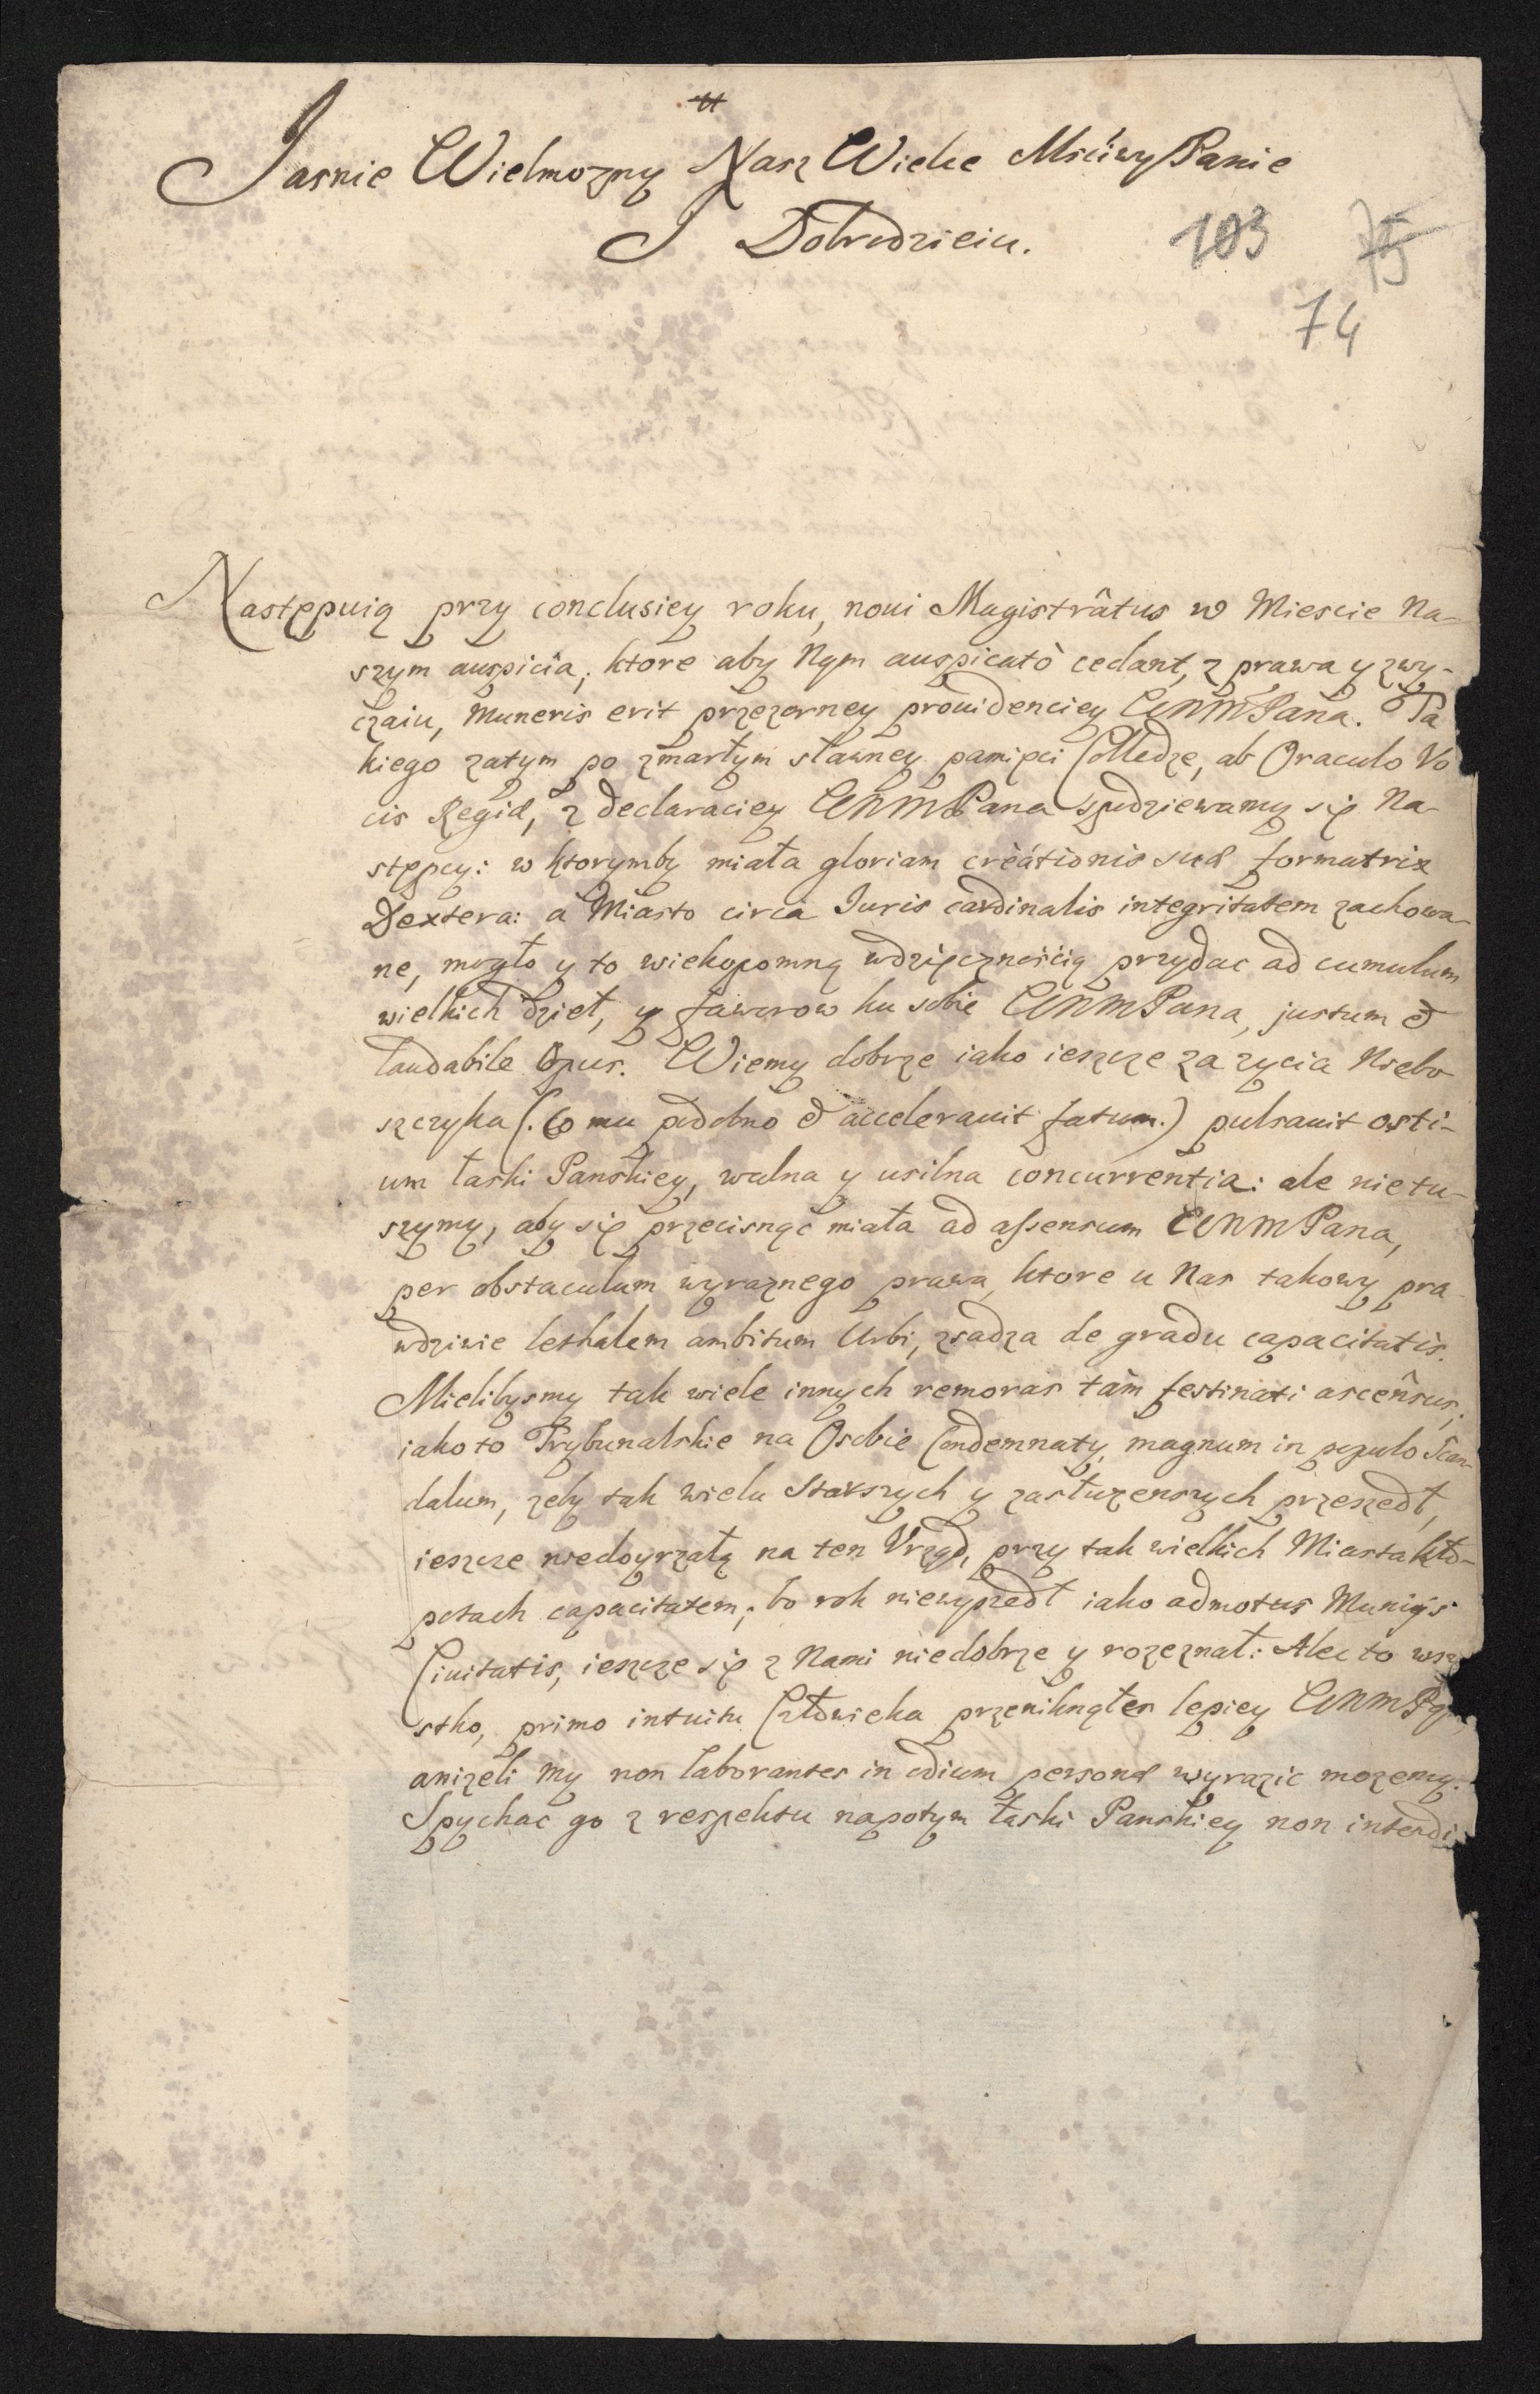 Jasnie Wielmozny Nasz Wielce Mściwy Panie
I Dobrodzieiu.
103 75
74
Następuią przy conclusiey roku, noui Magistrâtus w Miescie Na-
szym auspicia, ktore aby Nym auspicatò cedant, z prawa y zwy-
czaiu, Muneris erit przezorney prouidenciey WMMPana. Ta
kiego zatym po zmarłym sławney pamięci Colledze, ab Oraculo Vo
cis Regiæ, z declaraciey WMMPana spodziewamy się Na-
stępcy: w ktorymby miała gloriam creátionis suæ formatrix
Dextera: á Miasto circa Iuris cardinalis integritatem zachowa-
ne, mogło y to wiekopomną wdzięcznością przydac ad cumulum
wielkich dzieł, y faworow ku sobie WMMPana, justum &
laudabile Opus. Wiemy dobrze iako ieszcze za zycia Niebo
szczyka (. Co mu podobno & accelerauit fatum.) pulsauit osti-
um łaski Panskiey, walna y usilna concurrentia: ale nie tu-
szymy, aby się przecisnąć miała ad assensum WMMPana,
per obstaculum wyraznego prawa, ktore u Nas takowy pra-
wdziwie lethalem ambitum Urbi, zsadza de gradu capacitatis.
Mielibysmy tak wiele innych remoras tàm festinati ascênsus,
iako to Trybunalskie na Osobie Condemnaty, magnum in populo Scan-
dalum, zeby tak wielu Starszych y zasłuzenszych przeszedł,
ieszcze niedoyrzałą na ten Vrząd, przy tak wielkich Miasta kło-
potach capacitatem, bo rok niewyszedł iako admotus Munijs
Ciuitatis, ieszcze się z Nami niedobrze y rozeznał: Alec to wszy
stko, primo intuitu Człowieka przeniknąłes lepiey WMMPan
anizeli my non laborantes in odium personæ wyrazic mozemy.
Spychac go z respektu napotym łaski Panskiey non interdi